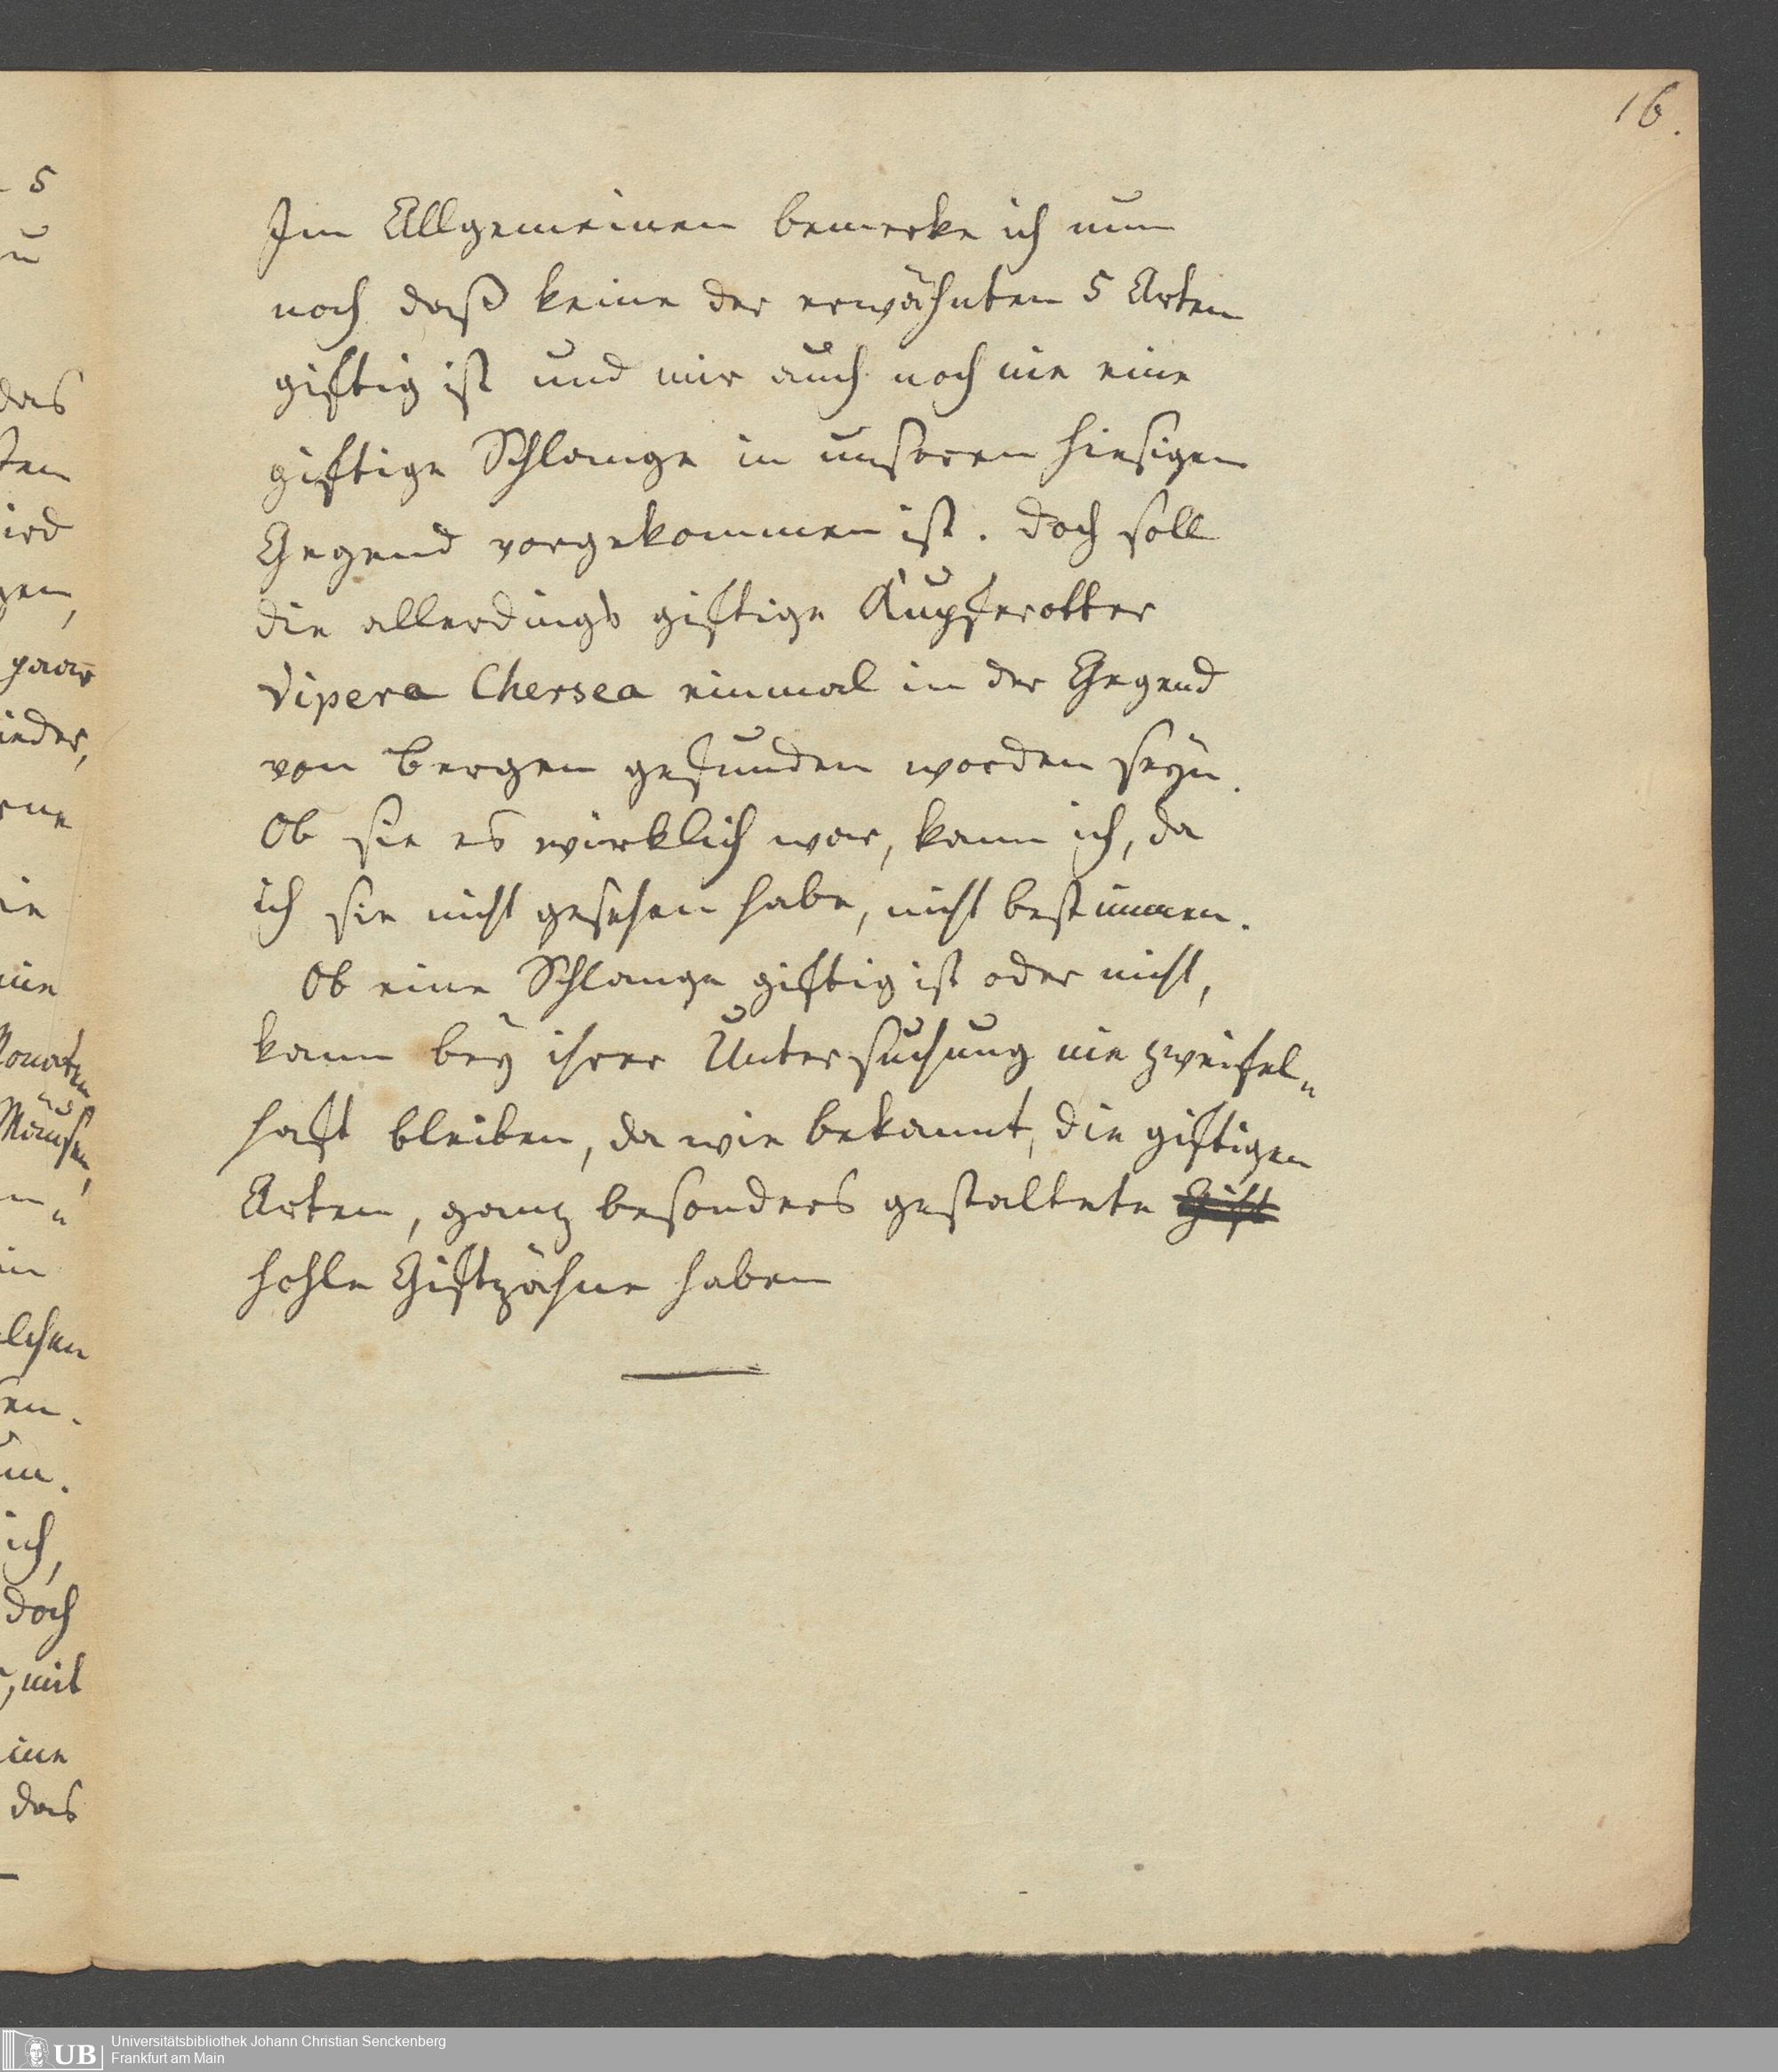 16.
Im Allgemeinen bemerke ich nun
noch daß keine der erwähnten 5 Arten
giftig ist und mir auch noch nie eine
giftige Schlange in unseren hiesigen
Gegend vorgekommen ist. Doch soll
die allerdings giftige Kupferotter
Vipera Chersea einmal in der Gegend
von Bergen gefunden worden seÿn.
Ob sie es wirklich war, kann ich, da
ich sie nicht gesehen habe, nicht bestimmen.
Ob eine Schlange giftig ist oder nicht,
kann beÿ ihrer Untersuchung nie zweifel„
haft bleiben, da wie bekannt, die giftigen
Arten, ganz besonders gestaltete Gift
hohle Giftzähne haben
5
das
ird
paar
ieder,
Monaten
Mäusen,
ich,
doch
, mit
das
UB Universitätsbibliothek Johann Christian Senckenberg
Frankfurt am Main